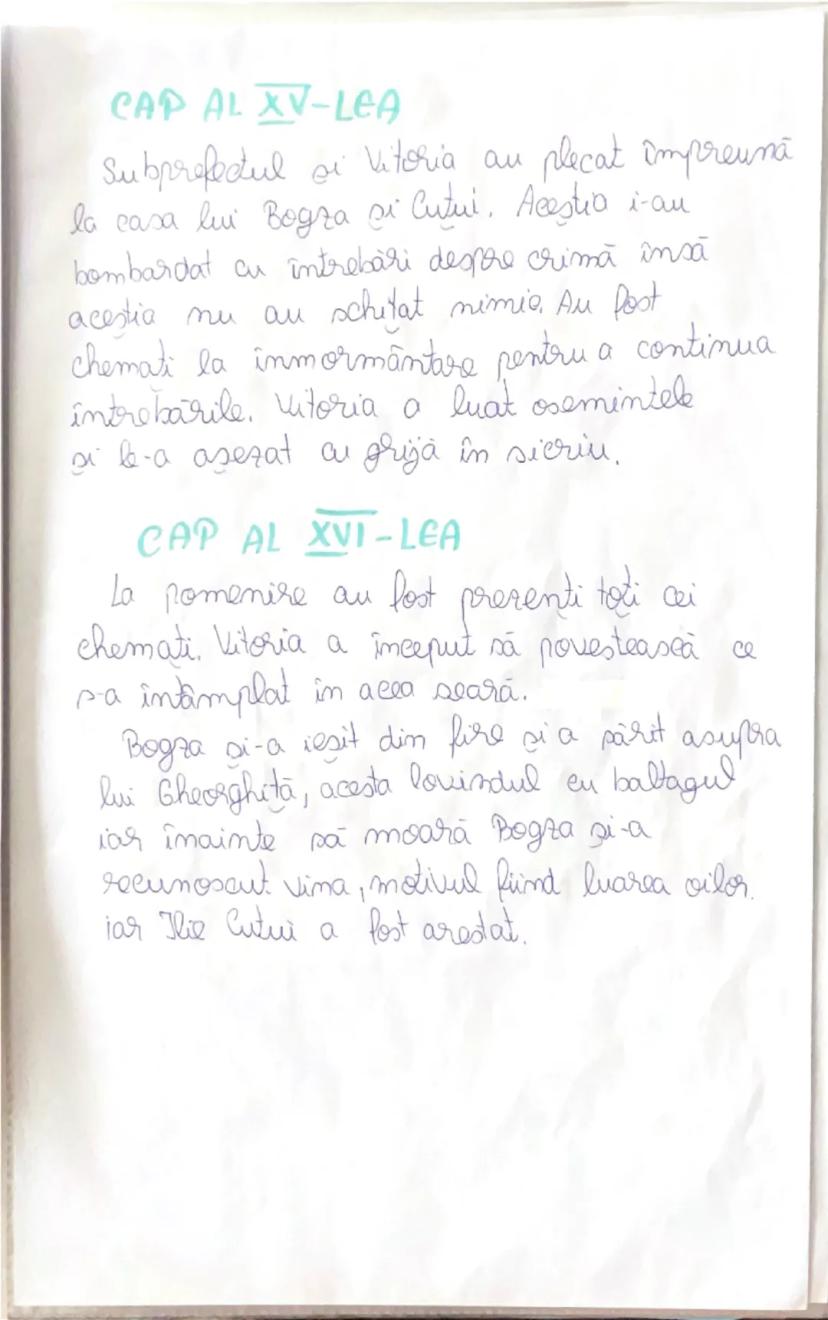 CAP AL XV-LEA
Subprefectul și Vitoria au plecat împreună
la casa lui Bogza și Cuțui. Aceștia i-au
bombardat cu întrebări despre crimă însă
aceștia nu au schițat nimic. Au fost
chemați la înmormântare pentru a continua
întrebările. Vitoria a luat osemintele
și le-a așezat cu grijă în sicriu.
CAP AL XVI-LEA
La pomenire au fost prezenți toți cei
chemați. Vitoria a început să povestească ce
s-a întâmplat în acea seară.
Bogza și-a ieșit din fire și a părit asupra
lui Gheorghiță, acesta lovindul cu baltagul
iar înainte să moară Bogza și-a
recunoscut vina, motivul fiind luarea oilor.
iar Ilie Cuțui a fost arestat.